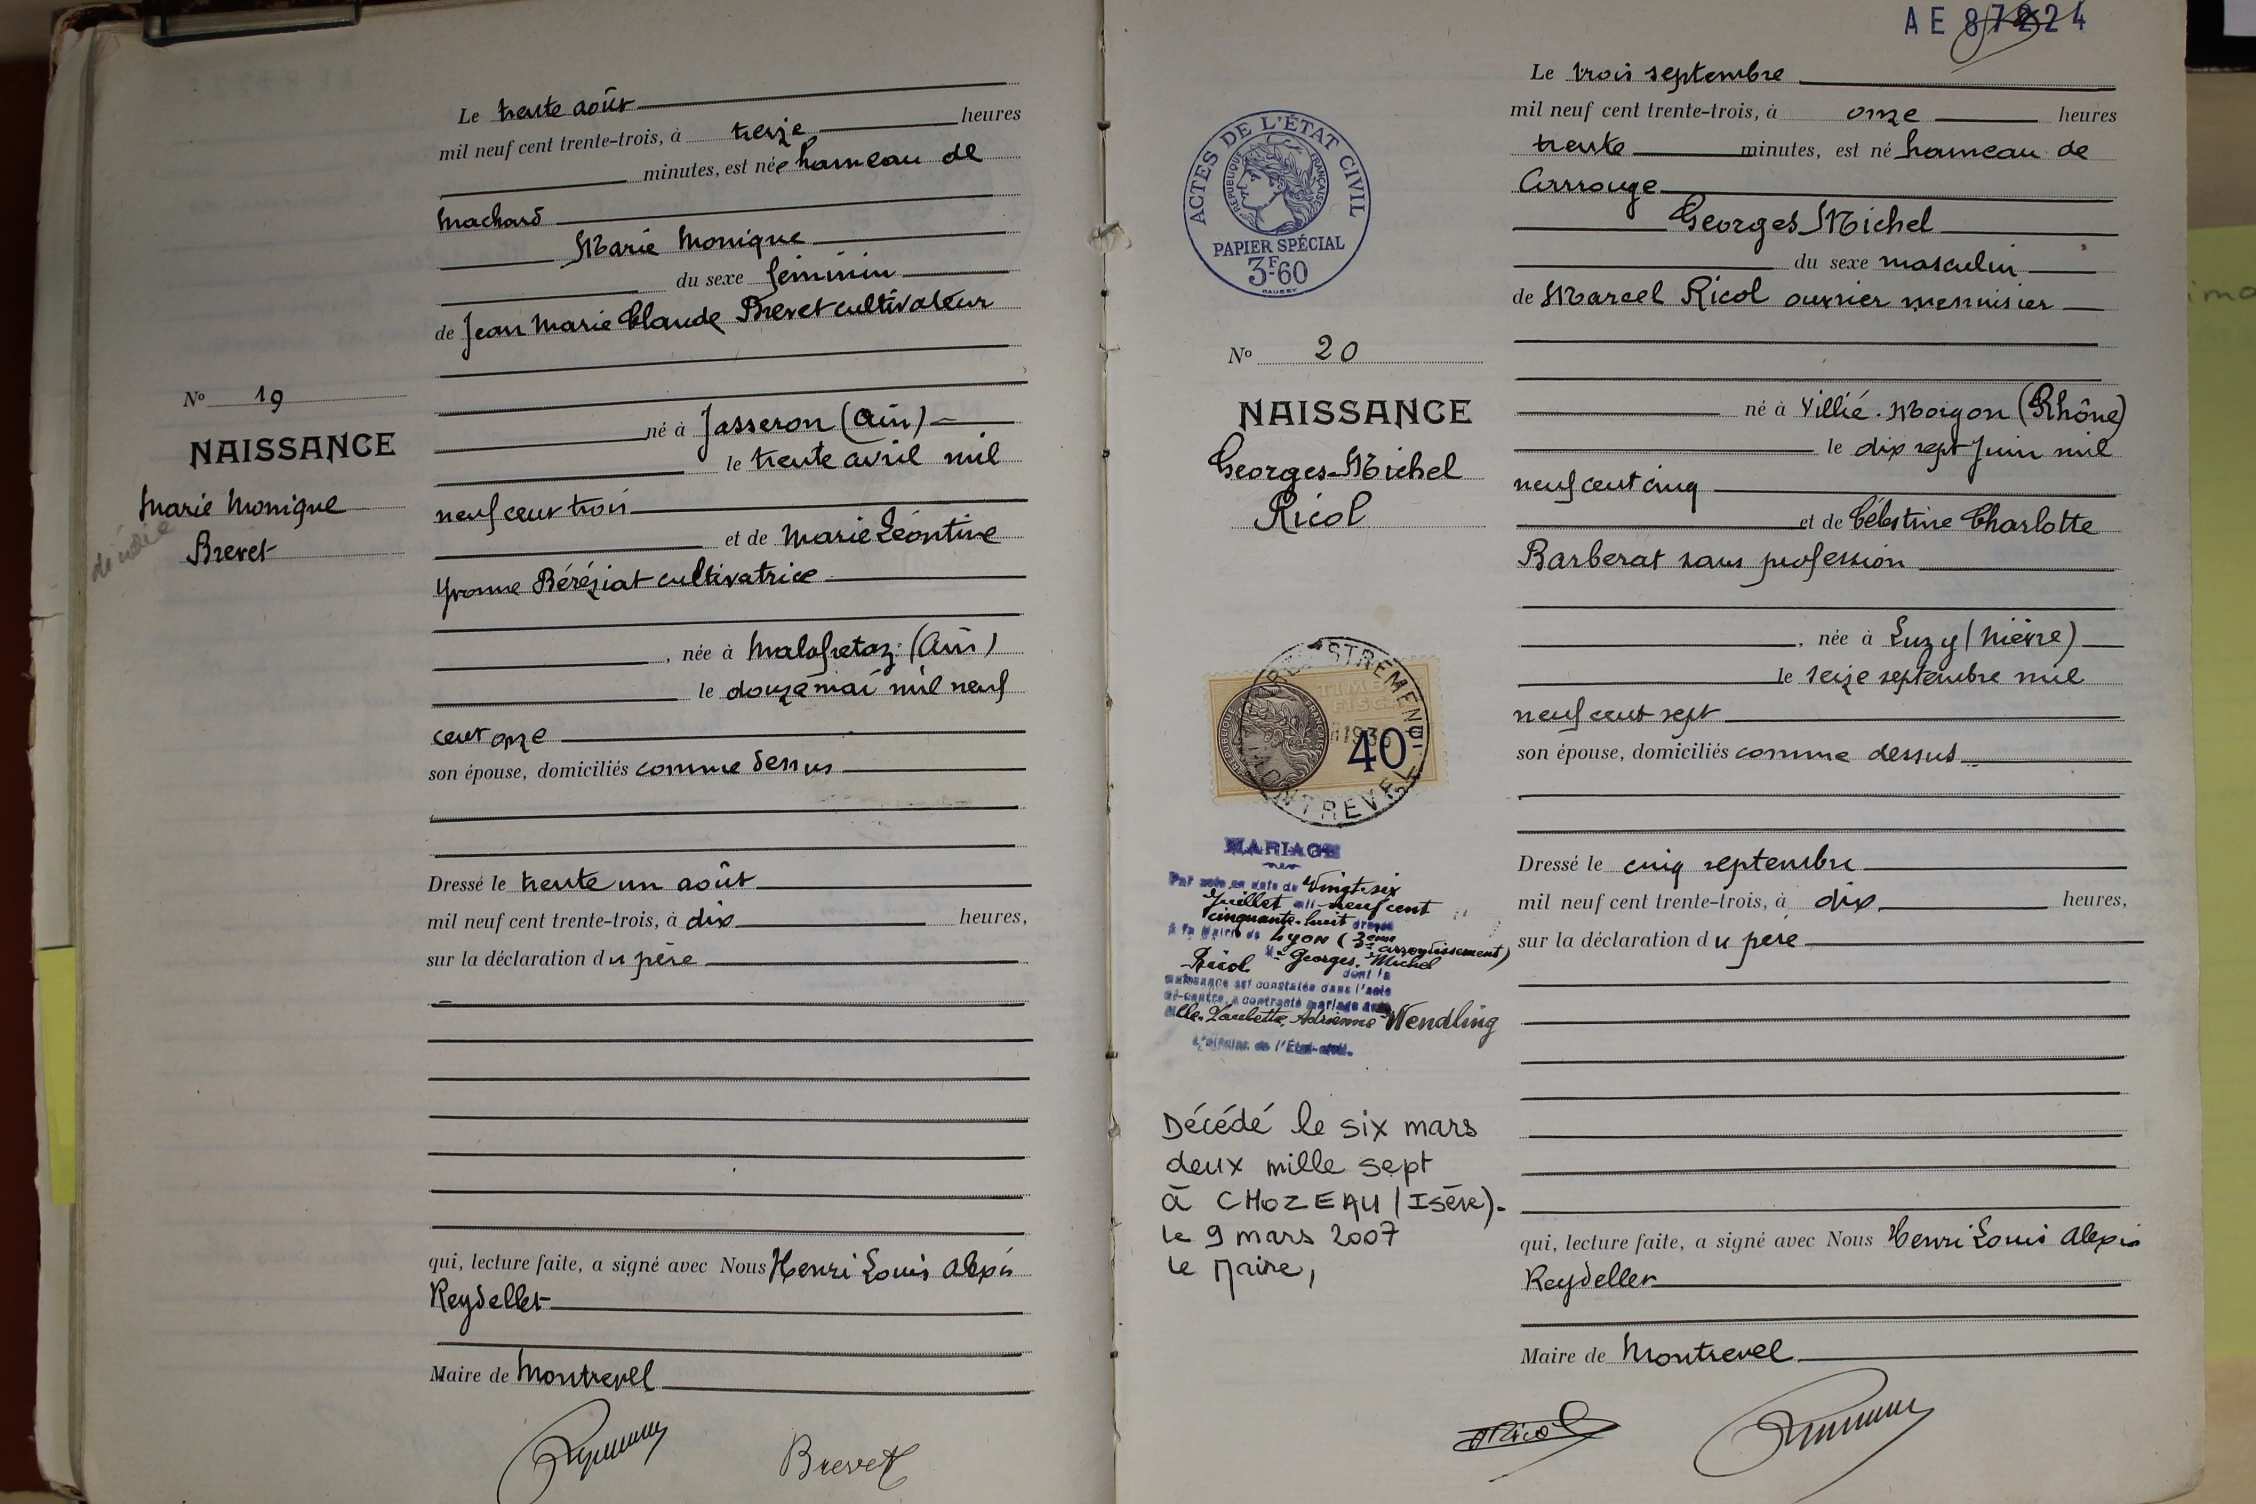 Le trente août
mil neuf cent trente-trois, à treize heures
minutes, est née hameau de
Machard
Marie Monique
du sexe féminin
de Jean Marie Claude Brevet cultivateur
né à Jasseron (Ain)
le trente avril mil
neuf cent trois
et de Marie Léontine
Yvonne Béréziat cultivatrice
, née à Malafretaz (Ain)
le douze mai mil neuf
cent onze
son épouse, domiciliés comme dessus
Dressé le trente un août
mil neuf cent trente-trois, à dix heures,
sur la déclaration du père
qui, lecture faite, a signé avec Nous Henri Louis Alexis
Reydellet
Maire de Montrevel
Brevet
No 19
NAISSANCE
Marie Monique
Brevet
AE 87224
ACTES DE L'ÉTAT CIVIL
RÉPUBLIQUE FRANÇAISE
PAPIER SPÉCIAL
3F60
No 20
NAISSANCE
Georges-Michel
Ricol
ENREGISTREMENT
TIMBRE
FISCAL
RÉPUBLIQUE FRANÇAISE
40
MONTREVEL
MARIAGE
Par acte en date du Vingt-six
Juillet mil neuf cent
cinquante-huit dressé
à la Mairie de Lyon (3ème arrondissement)
Ricol Mr Georges-Michel
dont la
naissance est constatée dans l'acte
ci-contre, a contracté mariage avec
Melle Adrienne Wendling
L'officier de l'État-civil.
Décédé le six mars
deux mille sept
à CHOZEAU (Isère).
le 9 mars 2007
le Maire,
Le trois septembre
mil neuf cent trente-trois, à onze heures
trente minutes, est né hameau de
Carrouge
Georges Michel
du sexe masculin
de Marcel Ricol ouvrier menuisier
né à Villié-Morgon (Rhône)
le dix sept Juin mil
neuf cent cinq
et de Célestine Charlotte
Barberat sans profession
, née à Luzy (Nièvre)
le seize septembre mil
neuf cent sept
son épouse, domiciliés comme dessus
Dressé le cinq septembre
mil neuf cent trente-trois, à dix heures,
sur la déclaration du père
qui, lecture faite, a signé avec Nous Henri Louis Alexis
Reydellet
Maire de Montrevel
Ricol